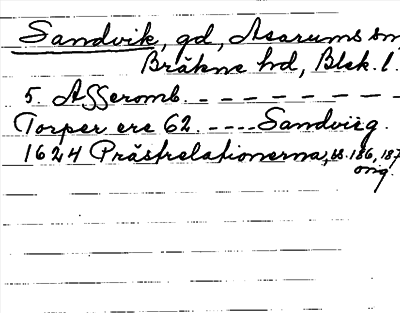 Sandvik, gd, Asarums sn
Bräkne hd, Blek. l.
5. Afferomb. - - - - - - -
Torper ere 62. ---- Sandviig.
1624 Prästrelationerna, ss. 186, 187
orig.